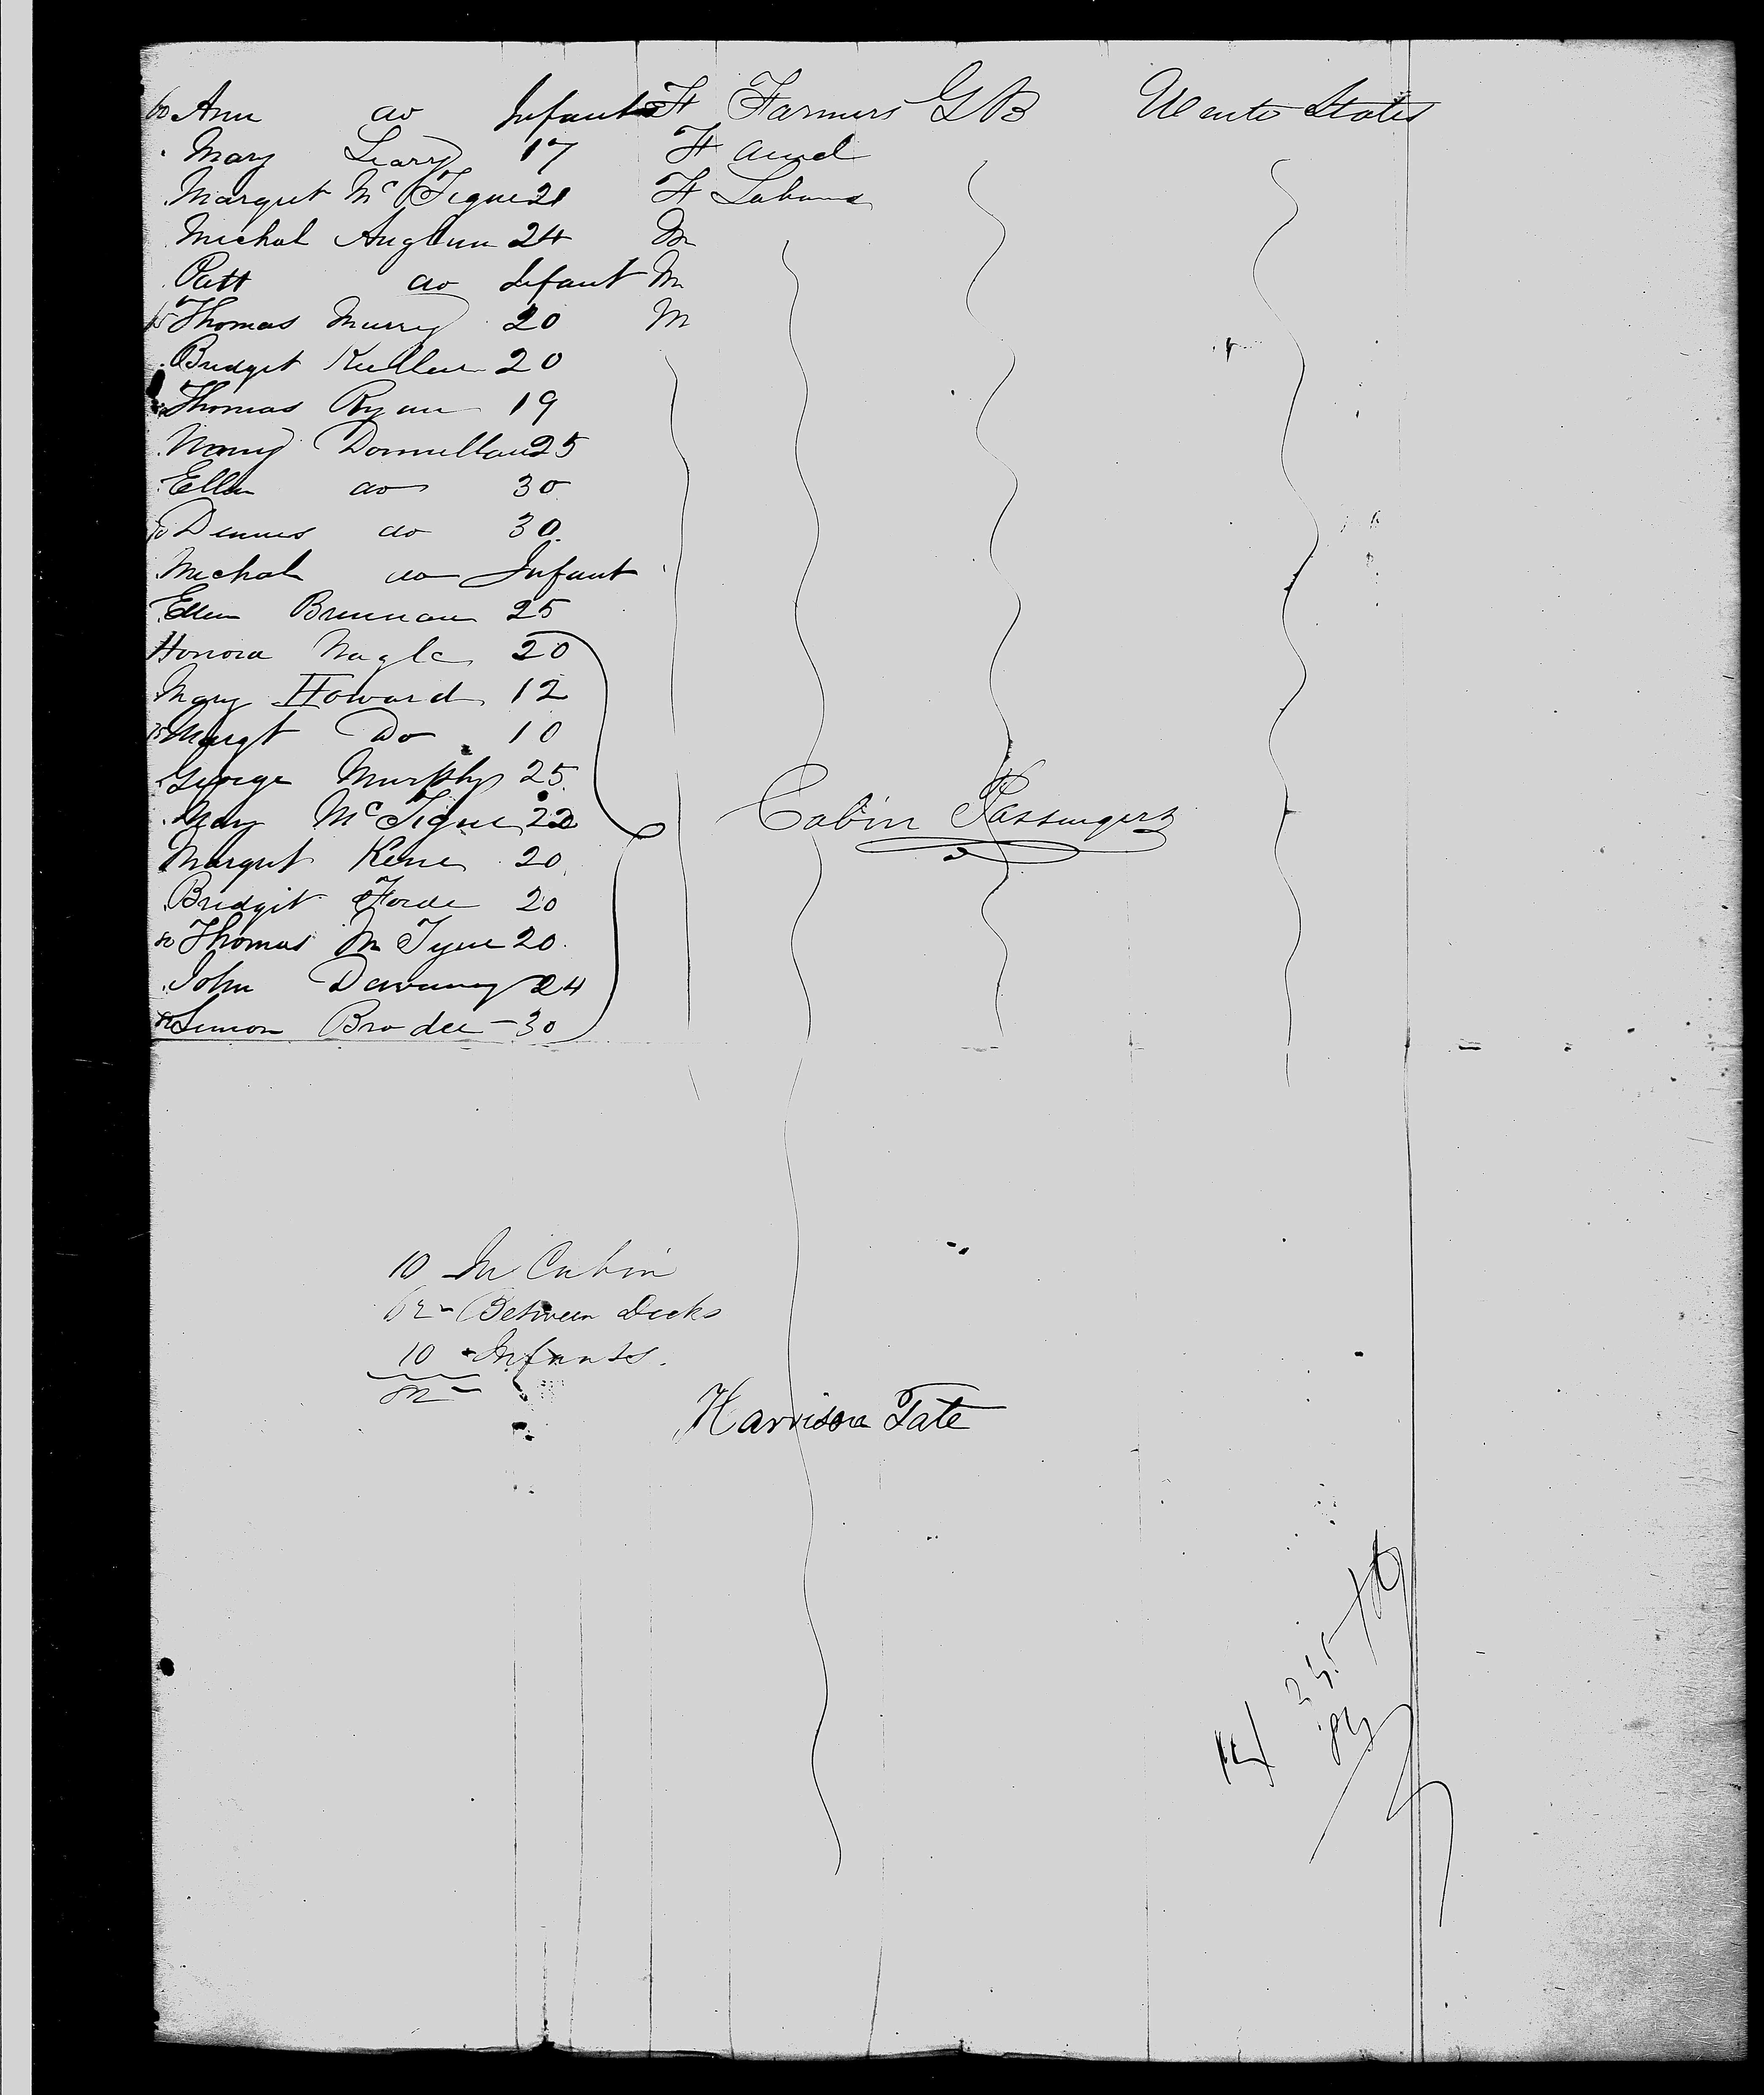 60 Ann do Infant F Farmers GB Unite States
Mary Leary 17 F and
Margret Mc Tigue 21 F Labours
Michal Anglum 24 M
Patt do Infant M
65 Thomas Murry 20 M
Bridget Kullen 20
Thomas Ryan 19
Donnellan 25
Ellen do 30
70 Dennis do 30
Michal do Infant
Ellen Brennan 25
Honora Nagle 20
Mary Howard 12
75 Margt Do 10
George Murphy 25
Mary Mc Tigue 22 Cabin Passengers
Margret Kene 20
Bridgit Forde 20
80 Thomas M Tyue 20
John 24
82 Simon Brodee - 30
10 In Cabin
62 - Between Decks
10 - Infants.
82 -
Harrison Tate